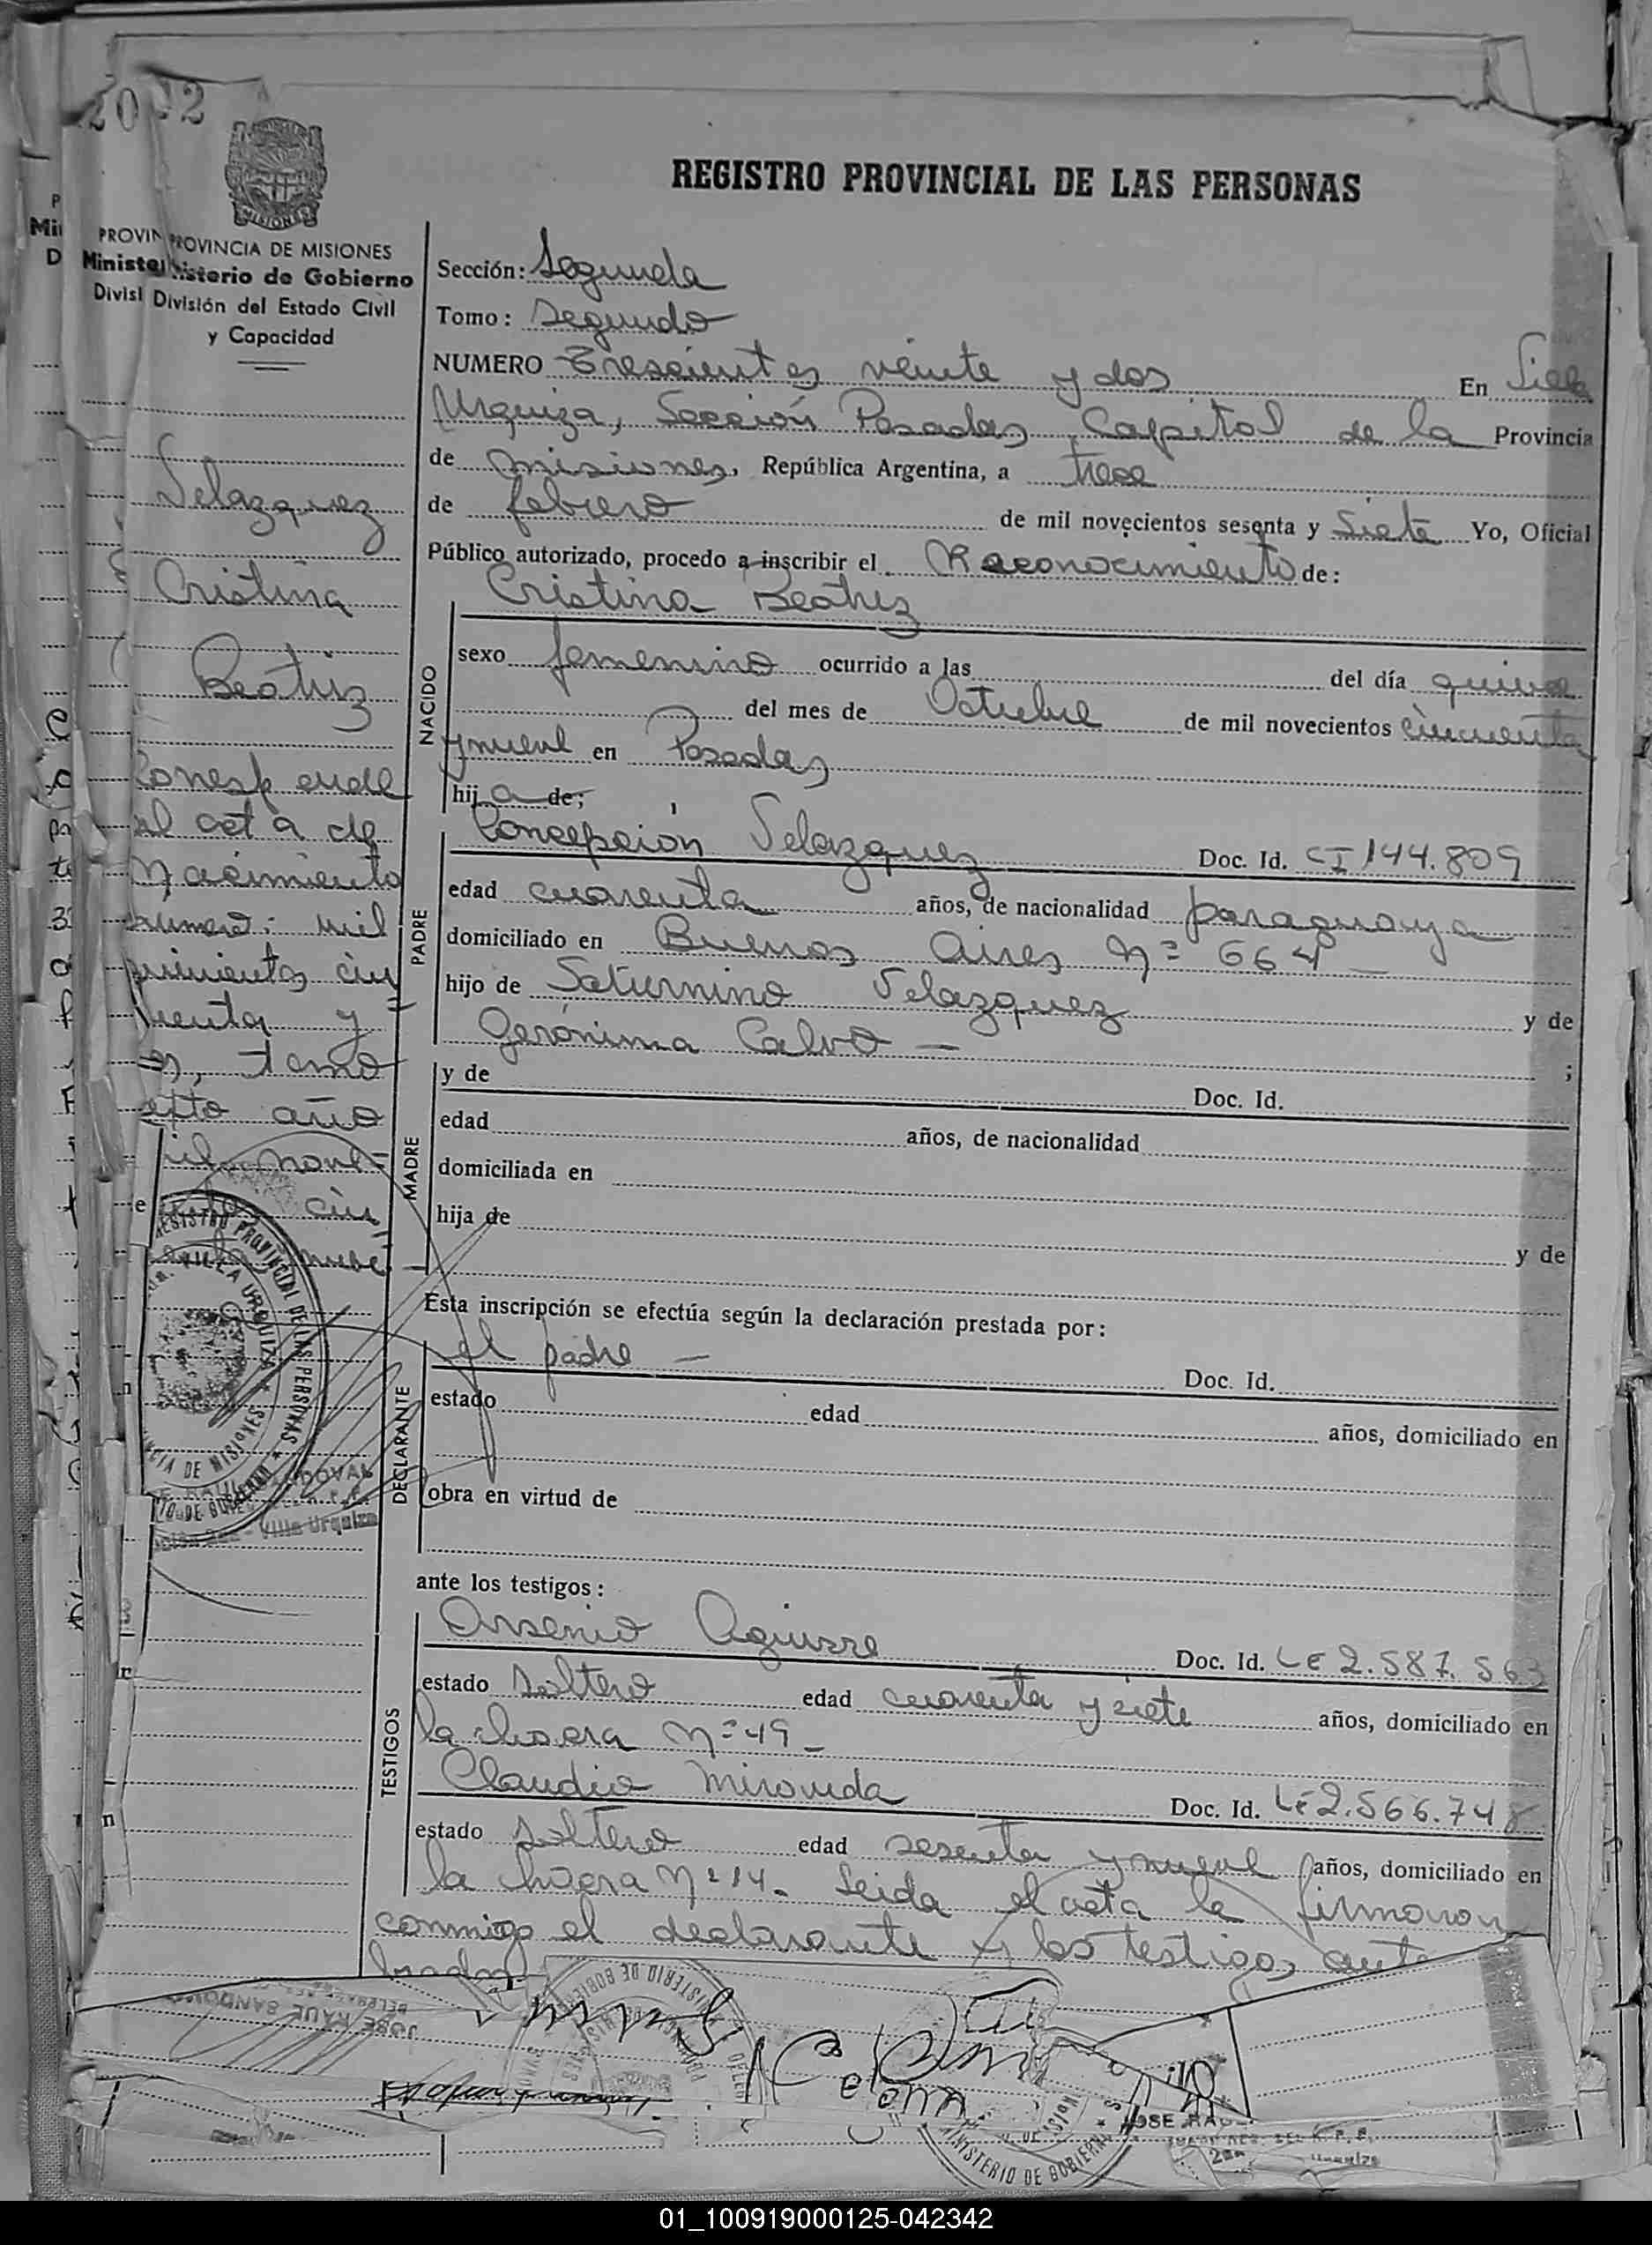 REGISTRO PROVINCIAL DE LAS PERSONAS
PROVINCIA DE MISIONES
Ministerio de Gobierno
División del Estado Civil
y Capacidad
Velazquez
Cristina
Beatriz
Corresponde
al acta de
Nacimiento
numero: mil
quinientos cin
cuenta y
tomo
año
mil nove-
cin
Sección: Segunda
Tomo: Segundo
NUMERO Trescientos veinte y dos En Villa
Urquiza, Sección Posadas, Capital de la Provincia
de Misiones, República Argentina, a trece
de febrero de mil novecientos sesenta y Siete Yo, Oficial
Público autorizado, procedo a inscribir el Reconocimiento de:
Cristina Beatriz
NACIDO
sexo femenino ocurrido a las del día quince
del mes de Octubre de mil novecientos cincuenta
y nueve en Posadas
hija de;
PADRE
Concepción Velazquez Doc. Id. CI 144.809
edad cuarenta años, de nacionalidad paraguaya
domiciliado en Buenos Aires Nº 664 —
hijo de Saturnino Velazquez y de
Gerónima Calvo — ;
MADRE
y de Doc. Id.
edad años, de nacionalidad
domiciliada en
hija de y de
Esta inscripción se efectúa según la declaración prestada por:
DECLARANTE
el padre — Doc. Id.
estado edad años, domiciliado en
obra en virtud de
ante los testigos:
TESTIGOS
Arsenio Aguirre Doc. Id. LE 2.587.563
estado soltero edad cuarenta y siete años, domiciliado en
la chacra Nº 49 —
Claudio Miranda Doc. Id. LE 2.566.748
estado soltero edad sesenta y nueve años, domiciliado en
la chacra Nº 14. Leida el acta la firmaron
conmigo el declarante y los testigos
JOSE RAUL SANDOVAL
REGISTRO PROVINCIAL DE LAS PERSONAS
VILLA URQUIZA
MISIONES
Villa Urquiza
MINISTERIO DE GOBIERNO
01_100919000125-042342